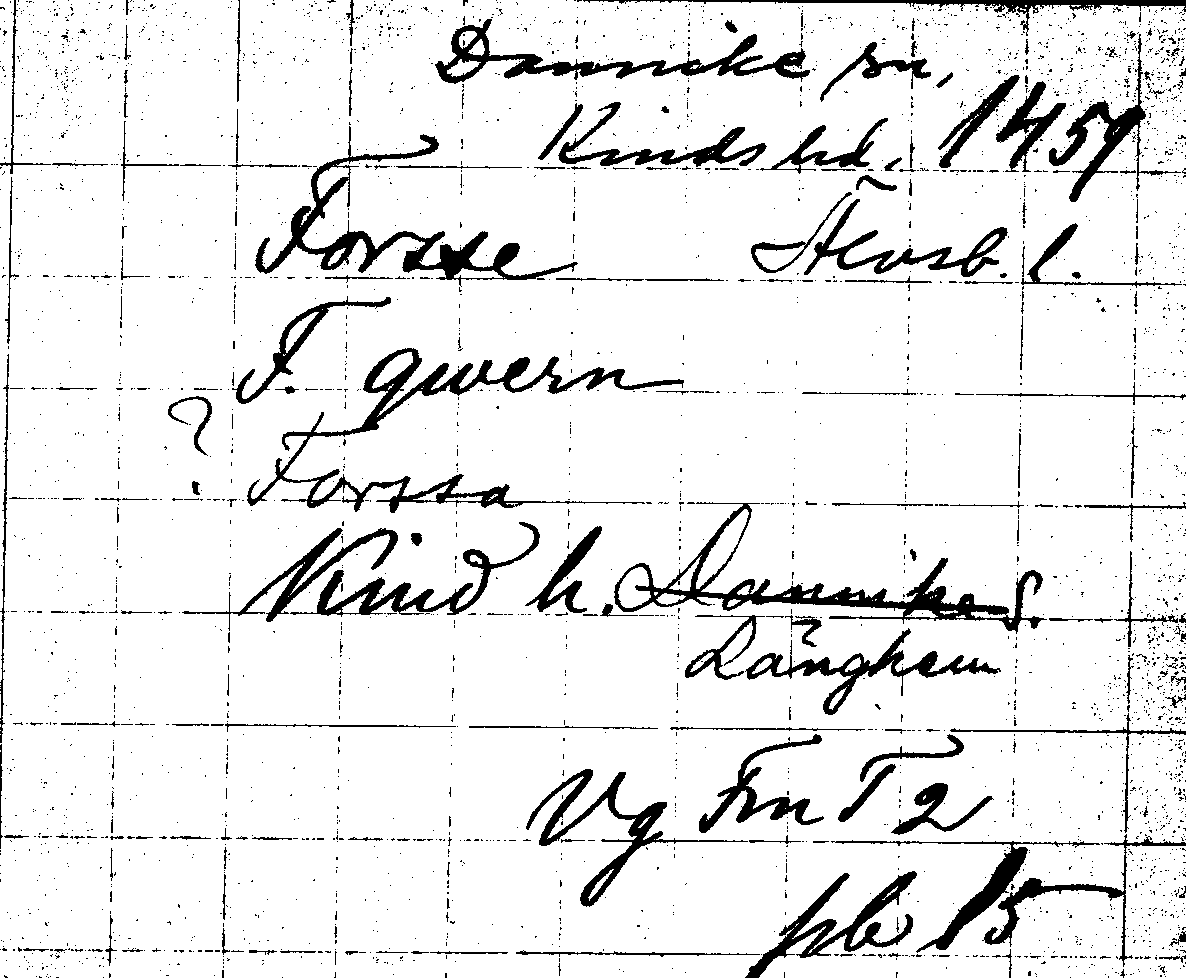 Dannike sn,
Kinds hd. 1459
Forsse Älvsb. l.
F. qwern
? Forssa
Kind h. Dannike s.
Långhem
Vg Fm T 2
sb 15